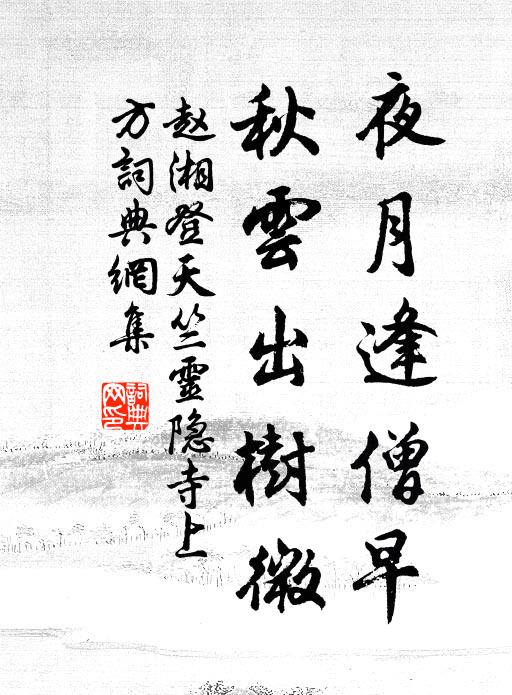 夜月逢僧早
秋雲出樹微
赵湘登天竺靈隐寺上
方詞典網集
詞典
网印